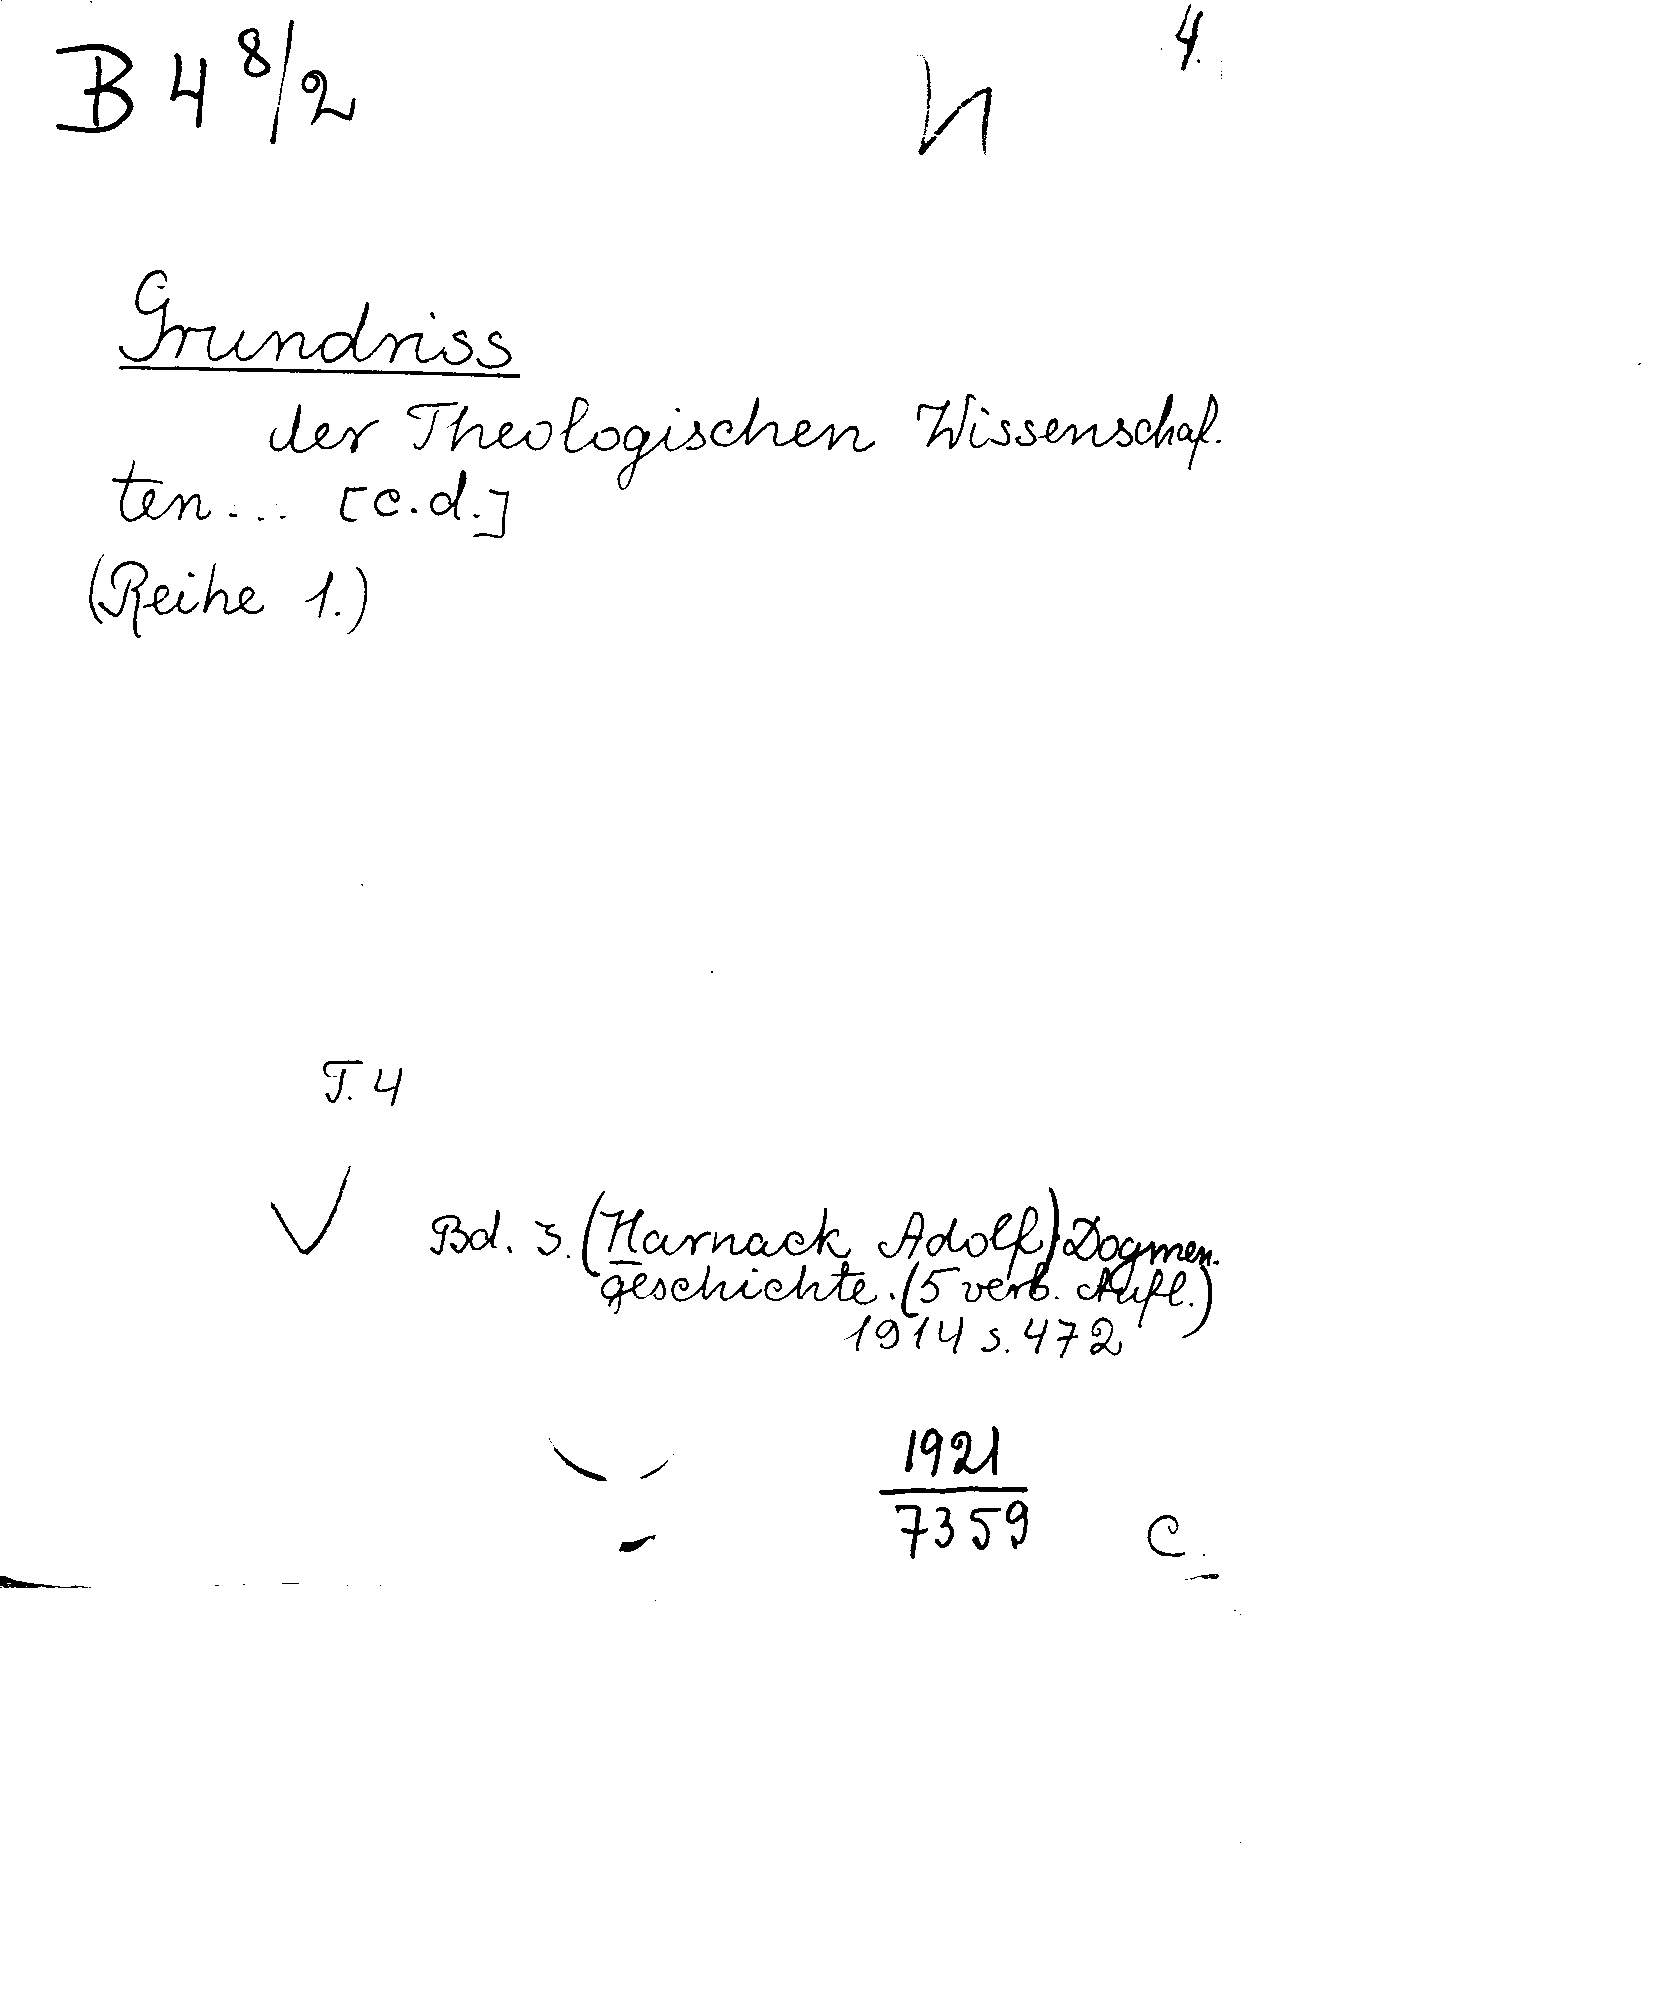 B 4 8/2
4.
Grundriss
der Theologischen Wissenschaf-
ten... [c.d.]
(Reihe 1.)
T. 4
Bd. 3. (Harnack Adolf) Dogmen-
geschichte. (5 verb. Aufl.)
1914 s. 472
1921
7359
C.